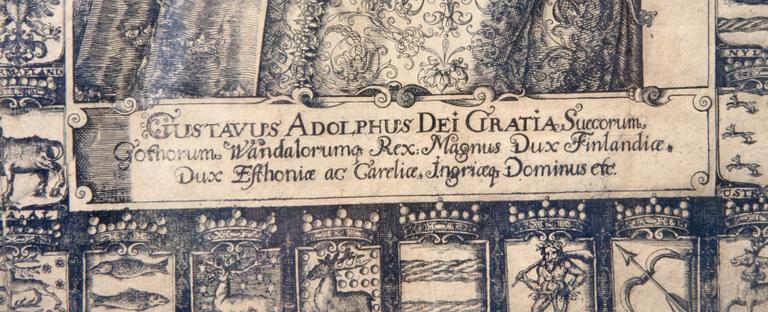 GUSTAVUS ADOLPHUS DEI GRATIA Suecorum
Gothorum Wandalorumq Rex: Magnus Dux Finlandiæ,
Dux Esthoniæ ac Careliæ, Ingriæq Dominus etc.
NYL